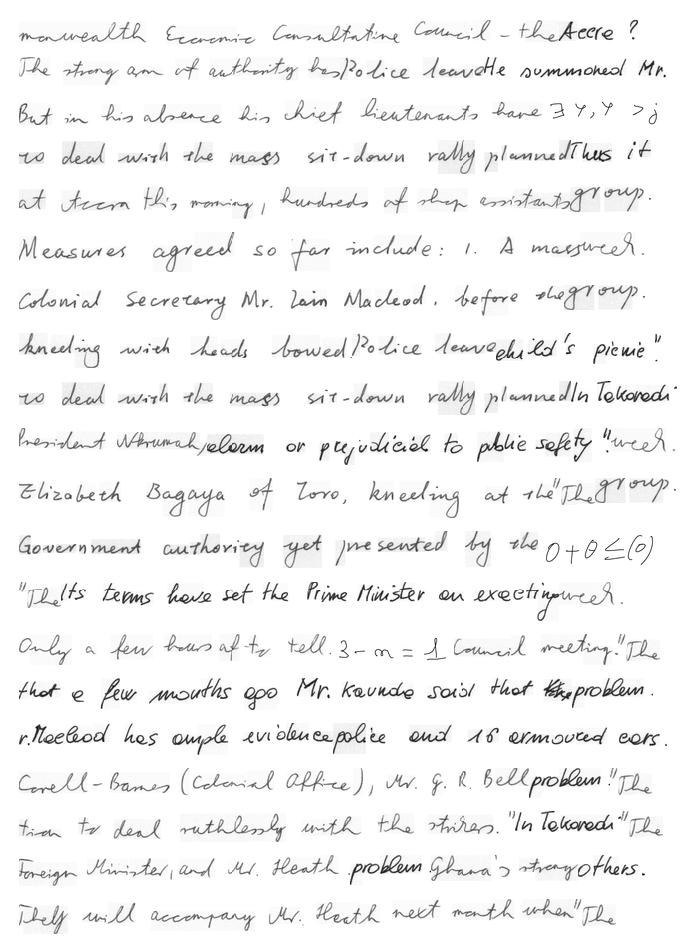 monwealth Economic Consultative Council - the Accra ?
The strong arm of authority has Police leave He summoned Mr.
But in his absence his chief lieutenants have ∃ Y, Y > j
to deal with the mass sit-down rally planned Thus it
at Accra this morning, hundreds of shop assistants group.
Measures agreed so far include: 1. A mass week.
Colonial Secretary Mr. Iain Macleod. before the group.
kneeling with heads bowed Police leave child's picnic".
to deal with the mass sit-down rally planned In Takoradi
President Nkrumah, alarm or prejudicial to public safety ". week.
Elizabeth Bagaya of Toro, kneeling at the "The group.
Government authority yet presented by the 0 + θ ≤ (0)
"The Its terms have set the Prime Minister an exacting week.
Only a few hours af to tell. 3 - m = 1 Council meeting." The
that a few months ago Mr. Kaunda said that the problem.
r. Macleod has ample evidence police and 16 armoured cars.
Corell-Barnes (Colonial Office), Mr. G. R. Bell problem." The
tion to deal ruthlessly with the strikers. "In Takoradi "The
Foreign Minister, and Mr. Heath problem Ghana's strong others.
They will accompany Mr. Heath next month when "The